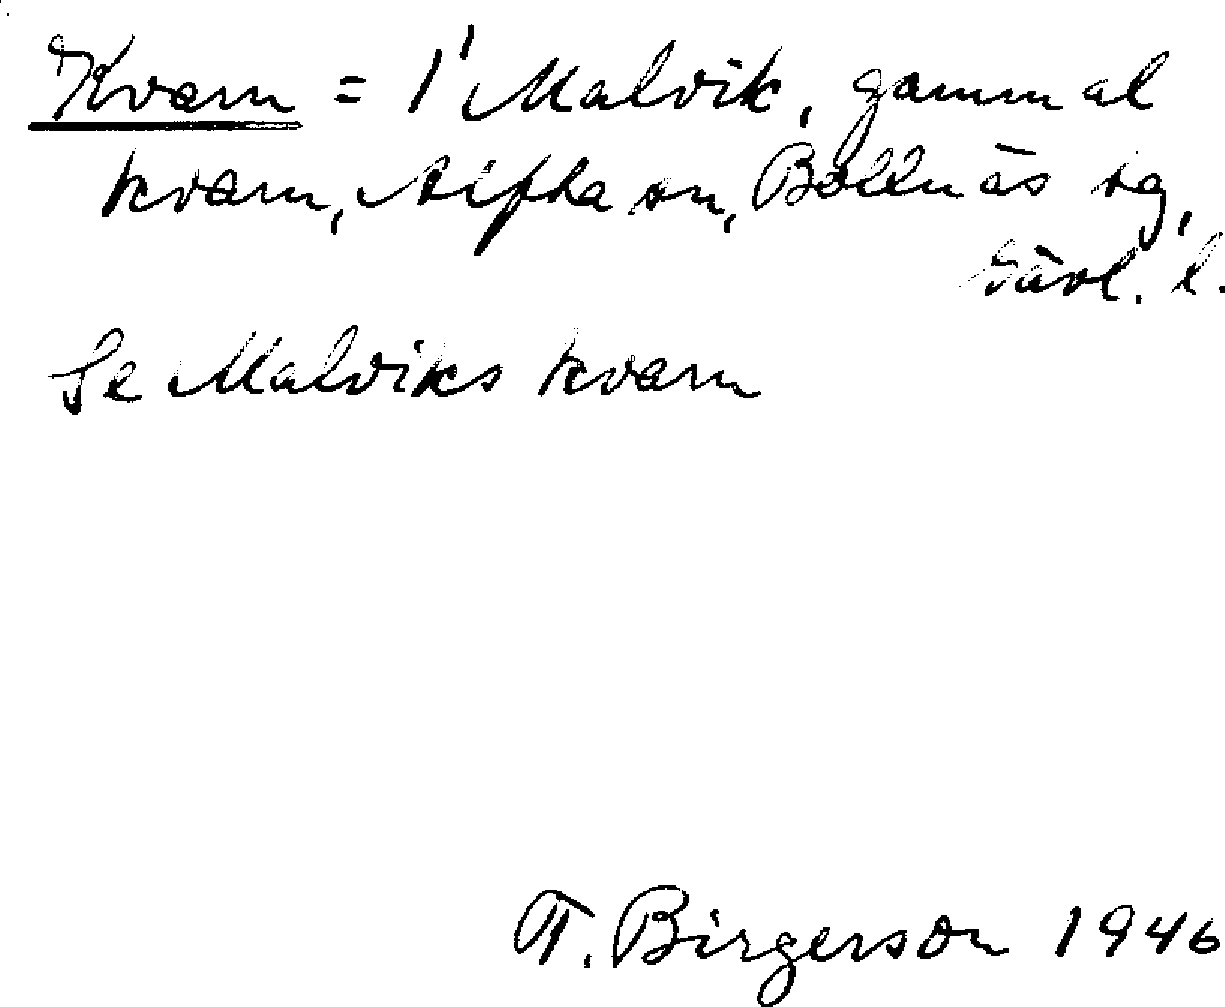 Kvarn = I Malvik, gammal
kvarn, Alfta sn, Bollnäs
Gävl. l.
Se Malviks kvarn
T. Birgerson 1946